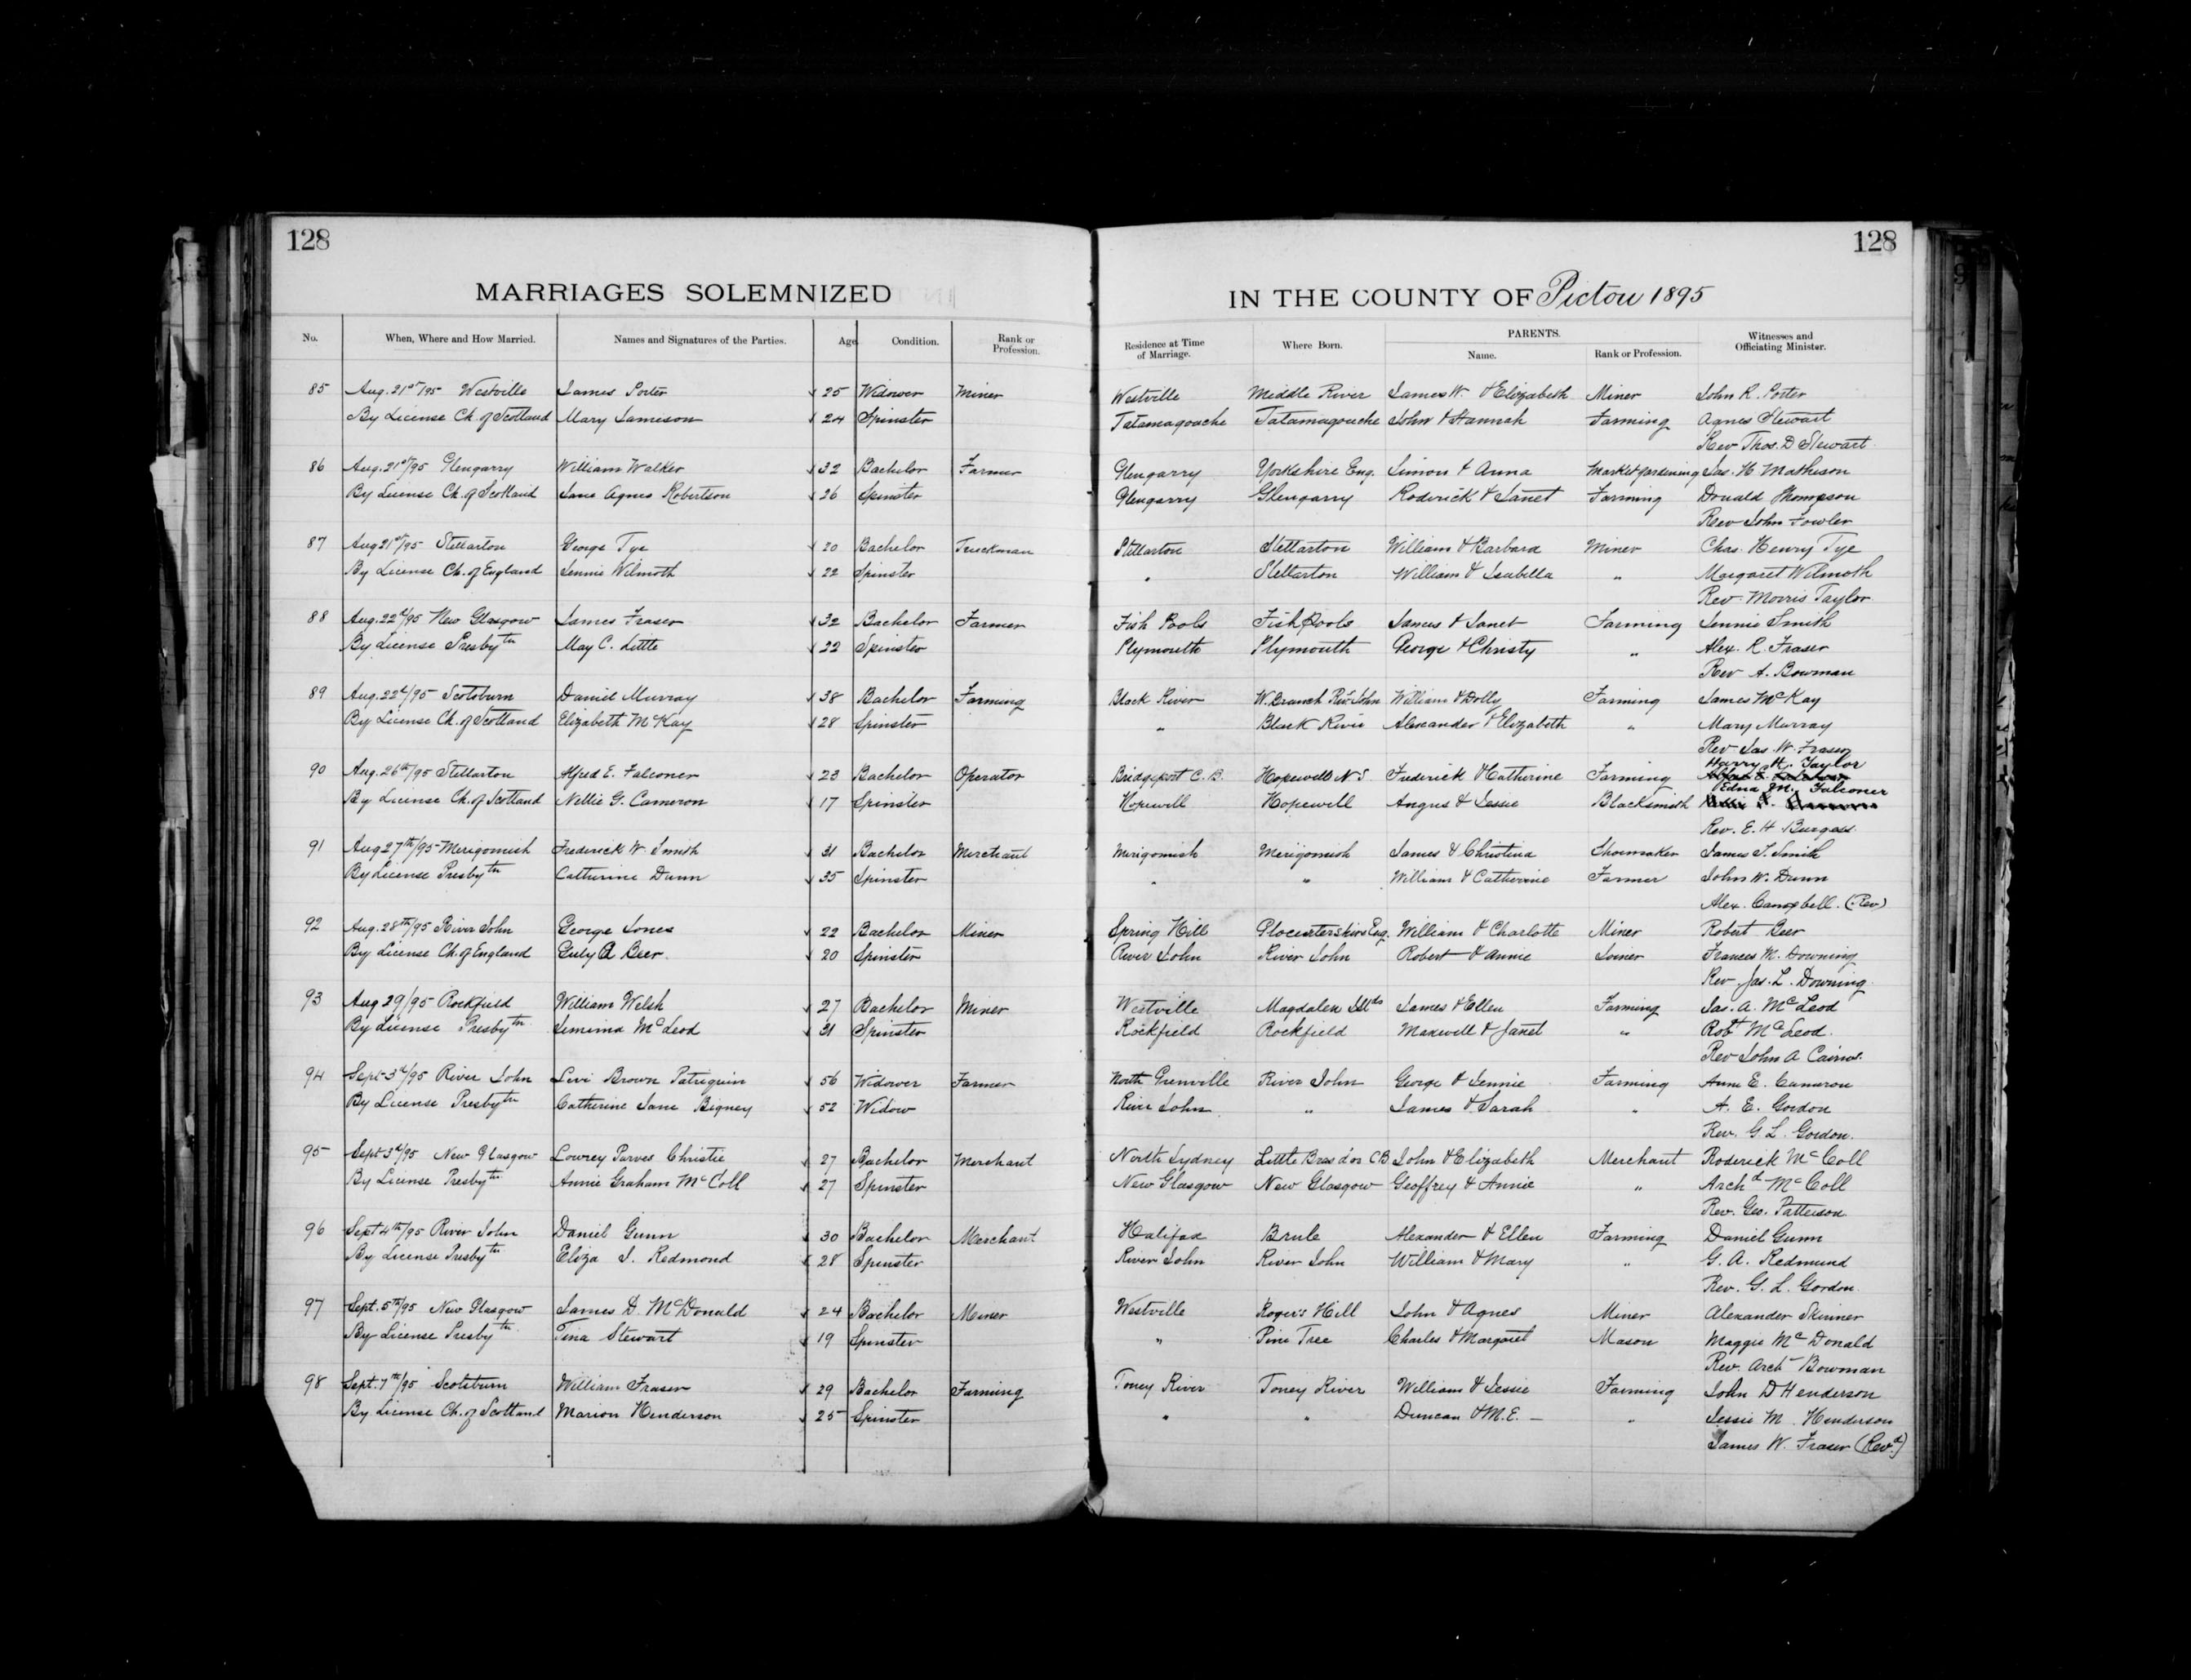 128
128
MARRIAGES SOLEMNIZED
IN THE COUNTY OF Pictou 1895
No. When, Where and How Married. Names and Signatures of the Parties. Age Condition. Rank or Profession. Residence at Time of Marriage. Where Born. PARENTS. Name. Rank or Profession. Witnesses and Officiating Minister.
85 Aug. 21st/95 Westville James Porter 25 Widower Miner Westville Middle River James W. & Elizabeth Miner John R. Porter
By License Ch. of Scotland Mary Jameson 24 Spinster Tatamagouche Tatamagouche John & Hannah Farming Agnes Stewart
Rev Thos. D Stewart
86 Aug. 21st/95 Glengarry William Walker 32 Bachelor Farmer Glengarry Yorkshire Eng. Simon & Anna Market gardening Jas. H Matheson
By License Ch. of Scotland Jane Agnes Robertson 26 Spinster Glengarry Glengarry Roderick & Janet Farming Donald Thompson
Rev John Fowler
87 Aug 21st/95 Stellarton George Tye 20 Bachelor Truckman Stellarton Stellarton William & Barbara Miner Chas. Henry Tye
By License Ch. of England Jennie Wilmoth 22 Spinster " Stellarton William & Isabella " Margaret Wilmoth
Rev. Morris Taylor
88 Aug. 22d/95 New Glasgow James Fraser 32 Bachelor Farmer Fish Pools Fish Pools James & Janet Farming Jennie Smith
By License Presbytn May C. Little 22 Spinster Plymouth Plymouth George & Christy " Alex. R. Fraser
Rev A. Bowman
89 Aug. 22d/95 Scotsburn Daniel Murray 38 Bachelor Farming Black River W. Branch Riv. John William & Dolly Farming James McKay
By License Ch. of Scotland Elizabeth McKay 28 Spinster " Black River Alexander & Elizabeth " Mary Murray
Rev Jas. W. Fraser
90 Aug. 26th/95 Stellarton Alfred E. Falconer 23 Bachelor Operator Bridgeport C.B. Hopewell N S Frederick & Catherine Farming Harry H. Taylor
By License Ch. of Scotland Nellie G. Cameron 17 Spinster Hopewell Hopewell Angus & Jessie Blacksmith Edna M. Falconer
Rev. E. H Burgess
91 Aug 27th/95 Merigomish Frederick W. Smith 31 Bachelor Merchant Merigomish Merigomish James & Christina Shoemaker James T. Smith
By License Presbytn Catherine Dunn 35 Spinster " " William & Catherine Farmer John W. Dunn
Alex. Campbell. (Rev)
92 Aug. 28th/95 River John George Jones 22 Bachelor Miner Spring Hill Glocestershire Eng. William & Charlotte Miner Robert Geer
By License Ch. of England 20 Spinster River John River John Robert & Annie Joiner Frances M. Downing
Rev. Jas. L. Downing
93 Aug 29/95 Rockfield William Welsh 27 Bachelor Miner Westville Magdalen Islds James & Ellen Farming Jas. A. McLeod
By License Presbytn Jemima McLeod 31 Spinster Rockfield Rockfield Maxwell & Janet " Robt McLeod
Rev John A Cairns
94 Sept 3d/95 River John Levi Brown Patriquin 56 Widower Farmer North Grenville River John George & Jennie Farming Anne E. Cameron
By License Presbytn Catherine Jane Bigney 52 Widow River John " James & Sarah " A. E. Gordon
Rev. G. L. Gordon.
95 Sept 3d/95 New Glasgow Lowrey Purves Christie 27 Bachelor Merchant North Sydney Little Bras d'or CB John & Elizabeth Merchant Roderick McColl
By License Presbytn Annie Graham McColl 27 Spinster New Glasgow New Glasgow Geoffrey & Annie " Archd McColl
Rev. Geo. Patterson
96 Sept 4th/95 River John Daniel Gunn 30 Bachelor Merchant Halifax Brule Alexander & Ellen Farming Daniel Gunn
By License Presbytn Eliza J. Redmond 28 Spinster River John River John William & Mary " G. A. Redmund
Rev. G. L. Gordon
97 Sept. 5th/95 New Glasgow James D. McDonald 24 Bachelor Miner Westville Roger's Hill John & Agnes Miner Alexander Skinner
By License Presbytn Tina Stewart 19 Spinster " Pine Tree Charles & Margaret Mason Maggie McDonald
Rev. Arch Bowman
98 Sept. 7th/95 Scotsburn William Fraser 29 Bachelor Farming Toney River Toney River William & Jessie Farming John D Henderson
By License Ch. of Scotland Marion Henderson 25 Spinster " " Duncan & M.E. — " Jessie M. Henderson
James W. Fraser (Revd)